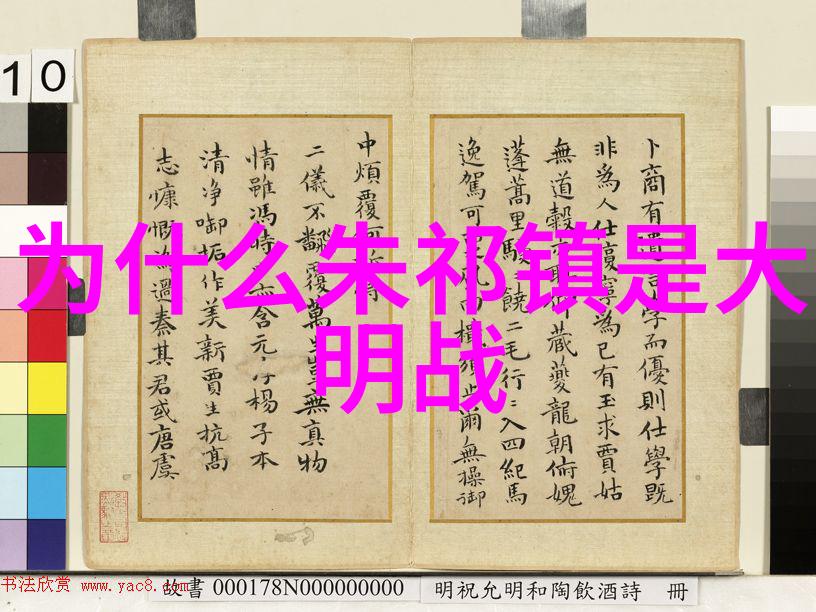 为什么朱祁镇是大
明战
10
卜商有遺言學而優則仕學既
非為人仕寔寧為己有玉求賈姑
無道穀
藏夔龍朝俯媿
蓬蒿里駿饒二毛行入四紀馬
逸駕可
爾無操御
中煩覆可
二儀不翻覆萬
無真物
情雖馮時亦含元
楊子本
清净啣垢作美新賈生抗髙
志慷慨
過秦其君或唐虞
书法欣赏 www.yac8.com
故書 000178N000000000
明祝允明和陶飲酒詩 冊